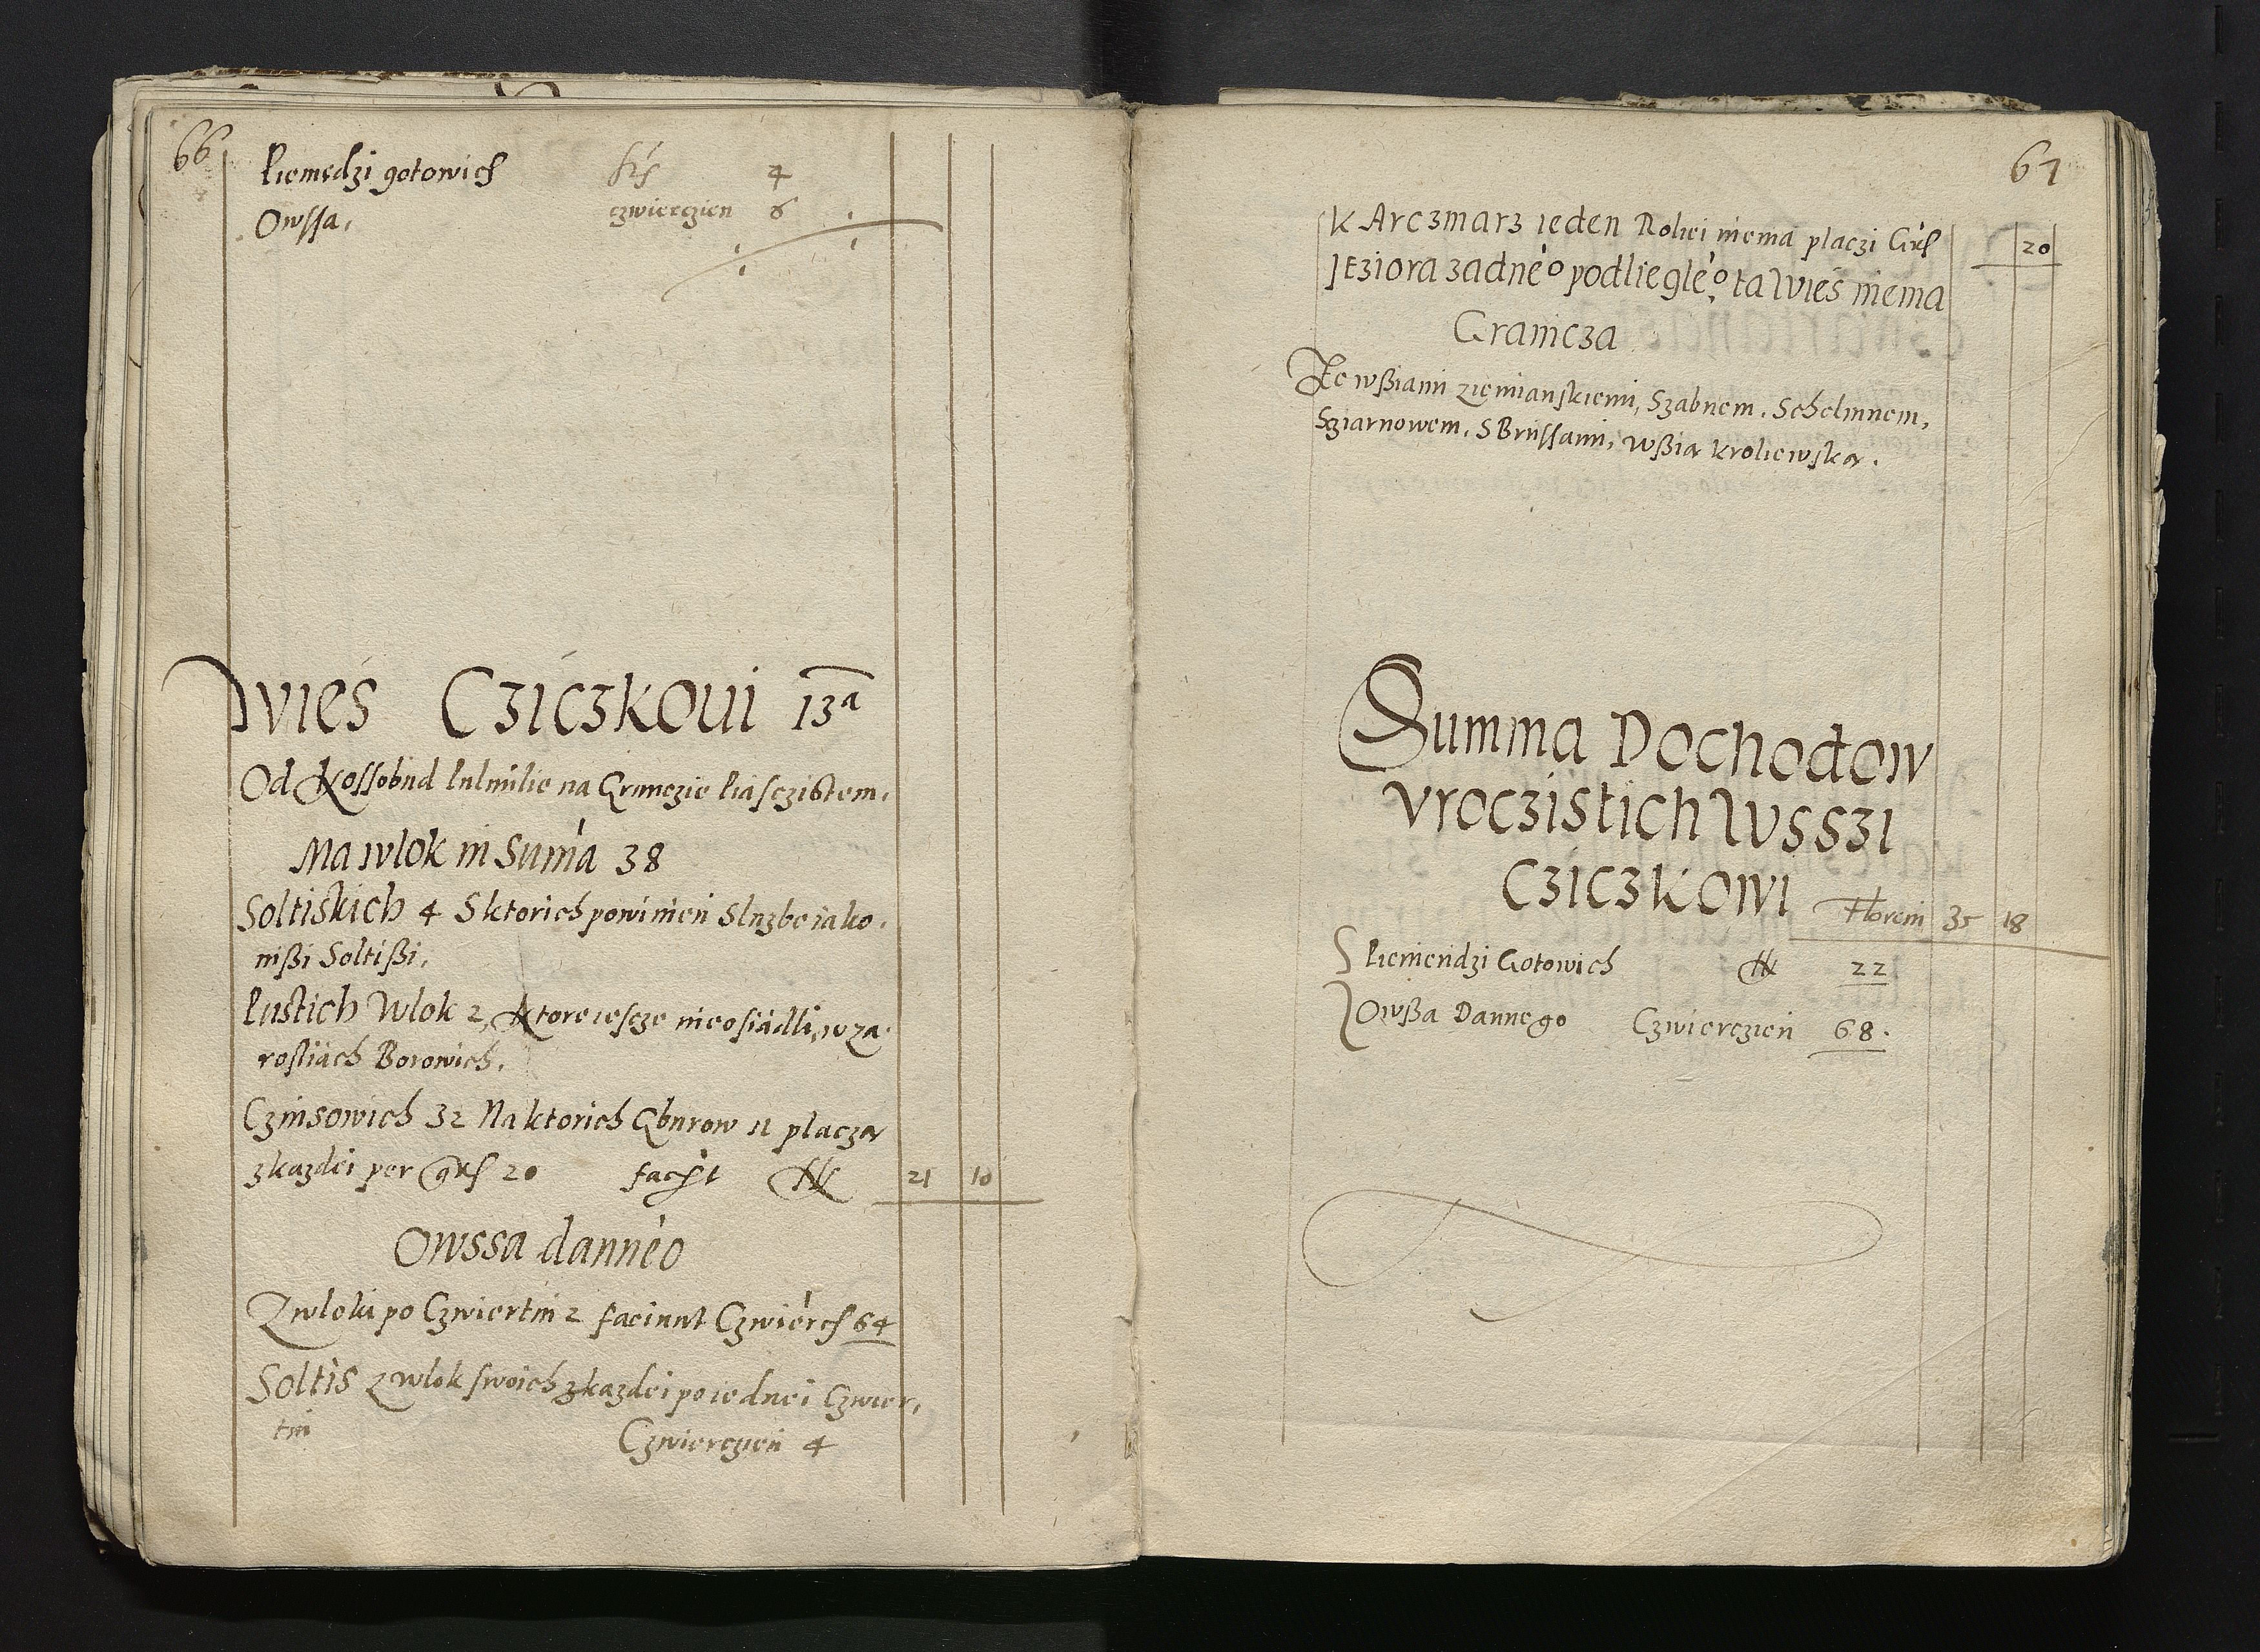 66
Pieniędzi gotowich fls 4
Owssa, czwierczien 6
Wieś Cziczkoui 13a
Od Kossobud pulmilie na Grunczie Piasczistem.
Ma wlok in Suma 38
Soltiskich 4 Sktorich powinien Sluzbe iako.
inßi Soltißi.
Pustich Wlok 2, ktore iescze nieosiadli, w za
rosliach Borowich.
Czinsowich 32 Na ktorich Gburow 11 placza
zkazdei per grs 20 facit fl 21 10
Owssa danneo
Z wloki po Czwiertni 2 faciunt Czwierch 64
Soltis z wlok swoich zkazdei po iednei Czwier,
tni Czwierczien 4
67
KArczmarz ieden Roliei niema placzi Grs 20
Jeziora zadneo podliegleo ta Wieś niema
Granicza
Ze wßiami ziemianskiemi, Szabnem. S chelmnem,
Sziarnowem. S Brussami, wßia kroliewska.
Summa Dochodow
vroczistich Wsszi
Cziczkowi Floreni 35 18
Pieniendzi Gotowich fl 22
Owßa Dannego Czwierczien 68.